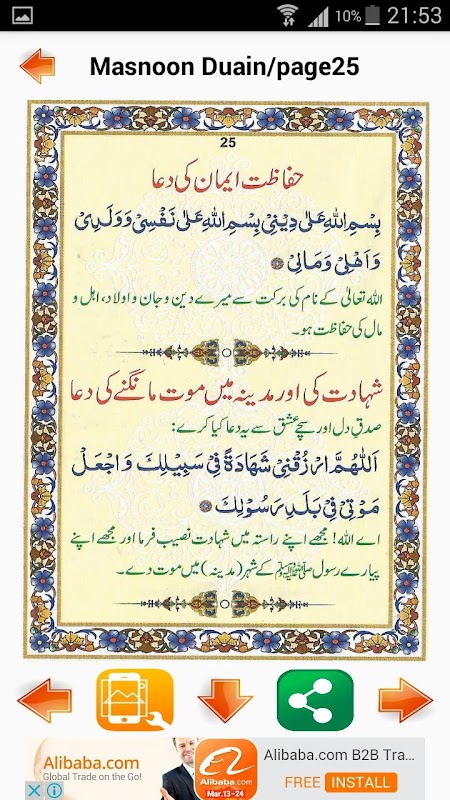 10% 21:53
Masnoon Duain/page25
25
حفاظت ایمان کی دعا
بِسْمِ اللهِ عَلٰى دِيْنِىْ بِسْمِ اللهِ عَلٰى نَفْسِىْ وَوَلَدِىْ
وَاَهْلِىْ وَمَالِىْ
اللہ تعالیٰ کے نام کی برکت سے میرے دین و جان و اولاد، اہل و
مال کی حفاظت ہو۔
شہادت کی اور مدینہ میں موت مانگنے کی دعا
صدق دل اور سچے عشق سے یہ دعا کیا کرے:
اَللّٰهُمَّ ارْزُقْنِىْ شَهَادَةً فِىْ سَبِيْلِكَ وَاجْعَلْ
مَوْتِىْ فِىْ بَلَدِ رَسُوْلِكَ
اے اللہ! مجھے اپنے راستہ میں شہادت نصیب فرما اور مجھے اپنے
پیارے رسول ﷺ کے شہر (مدینہ) میں موت دے۔
Alibaba.com
Global Trade on the Go!
Alibaba.com
Mar.13-24
Alibaba.com B2B Tra...
FREE INSTALL